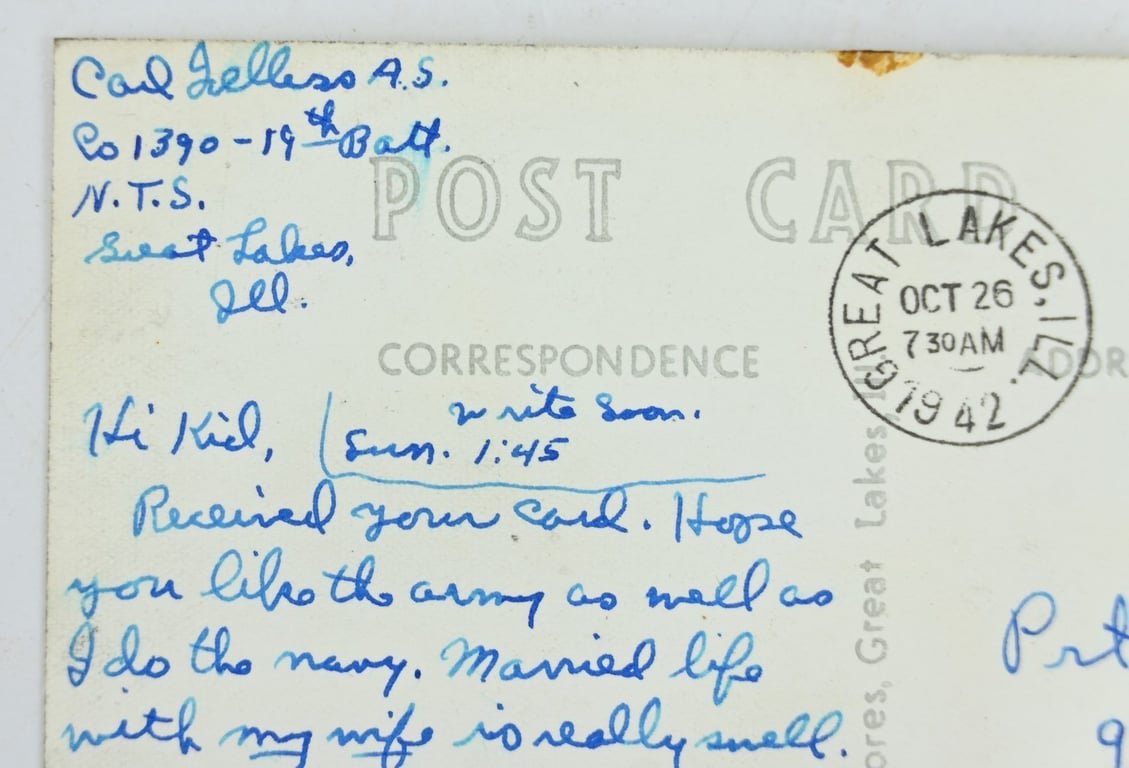 Carl Fellers A.S.
Co 1390 - 19th Batt.
N.T.S.
Great Lakes,
Ill.
POST CARD
GREAT LAKES, ILL.
OCT 26
7 30 AM
1942
CORRESPONDENCE
Hi Kid,
Write Soon.
Sun. 1:45
Received your card. Hope
you like the army as well as
I do the navy. Married life
with my wife is really swell.
ores, Great Lakes, Ill.